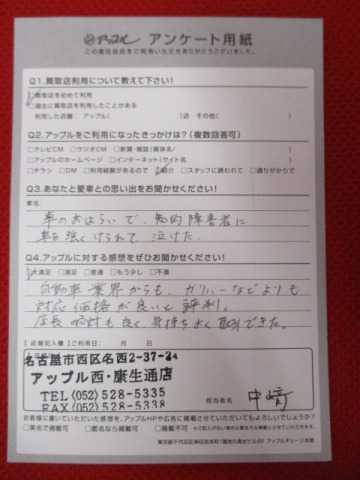 アップル アンケート用紙
この度は当店をご利用いただきありがとうございました。
Q1.買取店利用について教えて下さい!
□買取店を初めて利用
□過去に買取店を利用したことがある
利用した店舗: アップル( )店 その他( )
Q2.アップルをご利用になったきっかけは?(複数回答可)
□テレビCM □ラジオCM □新聞・雑誌(媒体名/ )
□アップルのホームページ □インターネット(サイト名 )
□チラシ □DM □利用経験があるので □紹介 □スタッフに誘われて □通りがかりで
Q3.あなたと愛車との思い出をお聞かせください!
車名:
車のおはらいで、知的障害者に
車を強くけられて、泣けた。
Q4.アップルに対する感想をぜひお聞かせください!
□大満足 □満足 □普通 □もう少し □不満
自動車業界からも、ガリバーなどよりも
対応価格が良いと評判。
店長の応対も良く気持ちよく取引できた。
【店舗記入欄】ご利用日: 月 日
名古屋市西区名西2-37-24
アップル西・康生通店
TEL(052)528-5335
FAX(052)528-5338
担当者名
お客様に書いていただいた感想を、アップルHPや広告に掲載させていただいてもよろしいでしょうか?
□実名で掲載可 □匿名なら掲載可 □掲載不可